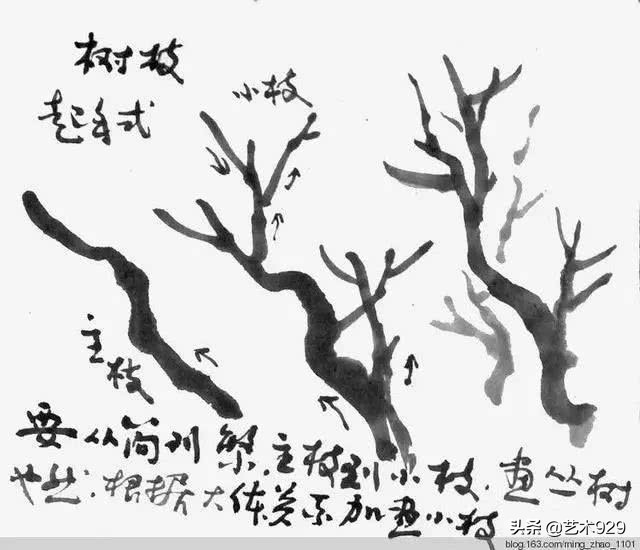 树枝
起手式
小枝
主枝
要从简到繁.主枝到小枝.画丛树
也然.根据大体关系加画小枝
头条 @艺术929
blog.163.com/ming_zhao_1101